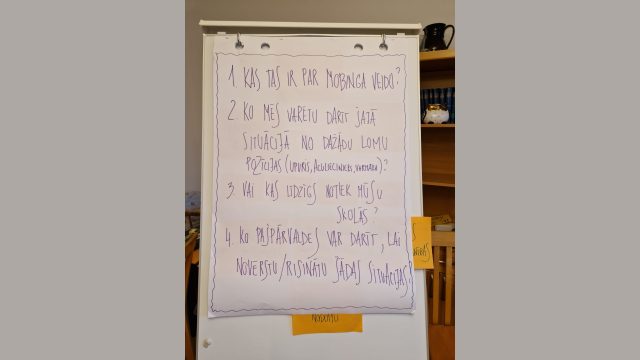 1. KAS TAS IR PAR MOBINGA VEIDU?
2. KO MĒS VARĒTU DARĪT ŠAJĀ
SITUĀCIJĀ NO DAŽĀDU LOMU
POZĪCIJAS (UPURIS, ACULIECINIEKS, VARMĀKA)?
3. VAI KAS LĪDZĪGS NOTIEK MŪSU
SKOLĀS?
4. KO PAŠPĀRVALDES VAR DARĪT, LAI
NOVĒRSTU/RISINĀTU ŠĀDAS SITUĀCIJAS?